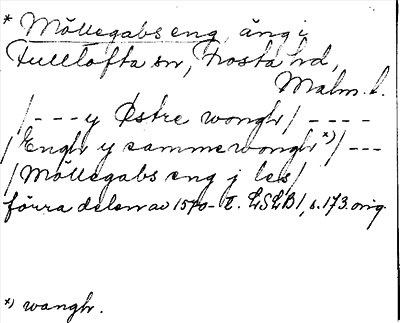 * Möllegabs eng, äng i
Fulltofta sn, Frosta hd,
Malm. l.
/--- y Østre wongh/ ----
/Engh y samme wongh *)/ ---
/Möllegabs eng j les/
förra delen av 1570-t. LSLB 1, s. 173. orig.
*) wangh.